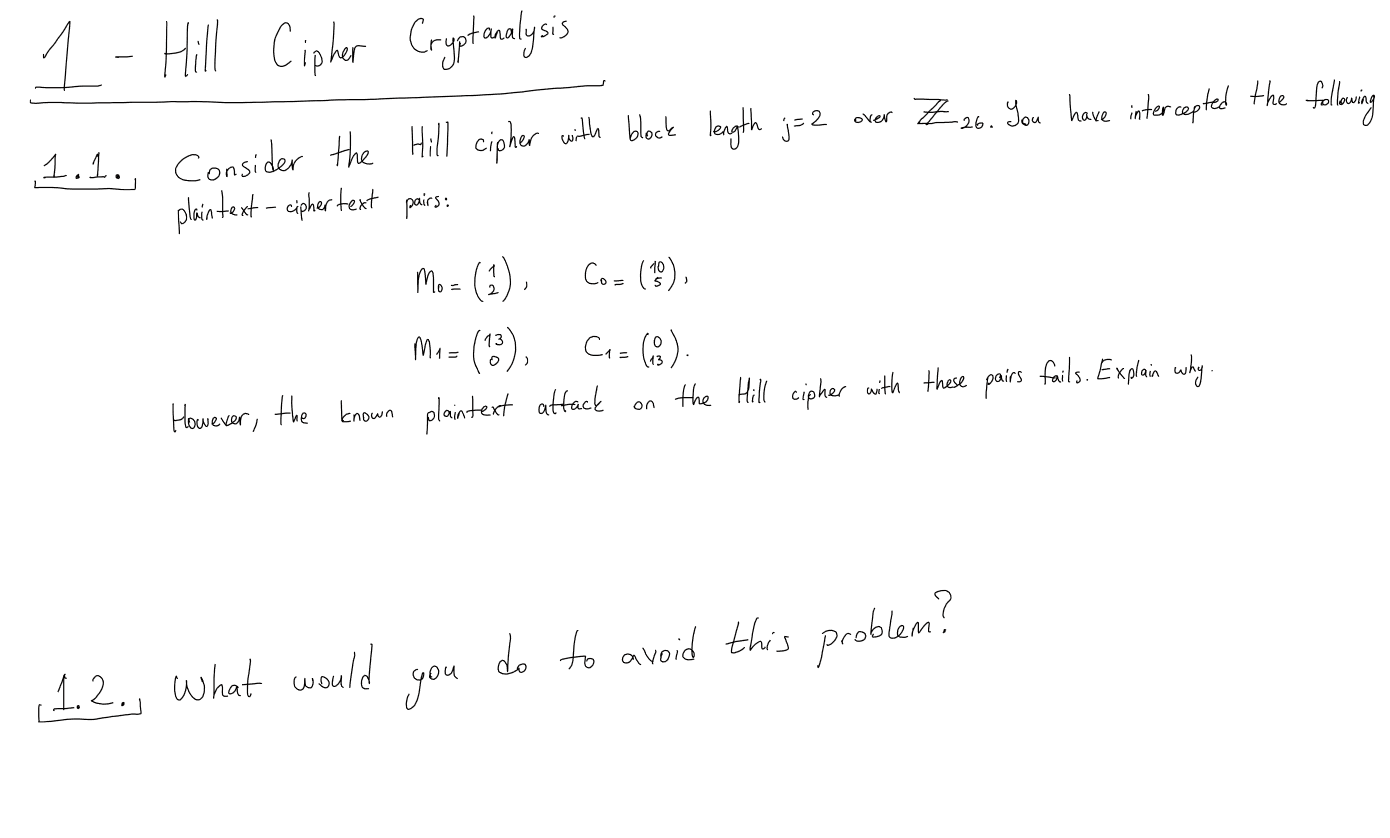 1 - Hill Cipher Cryptanalysis
1.1. Consider the Hill cipher with block length j=2 over ℤ₂₆. You have intercepted the following
plaintext - ciphertext pairs:
M₀ = (1 2), C₀ = (10 5),
M₁ = (13 0), C₁ = (0 13).
However, the known plaintext attack on the Hill cipher with these pairs fails. Explain why.
1.2. What would you do to avoid this problem?